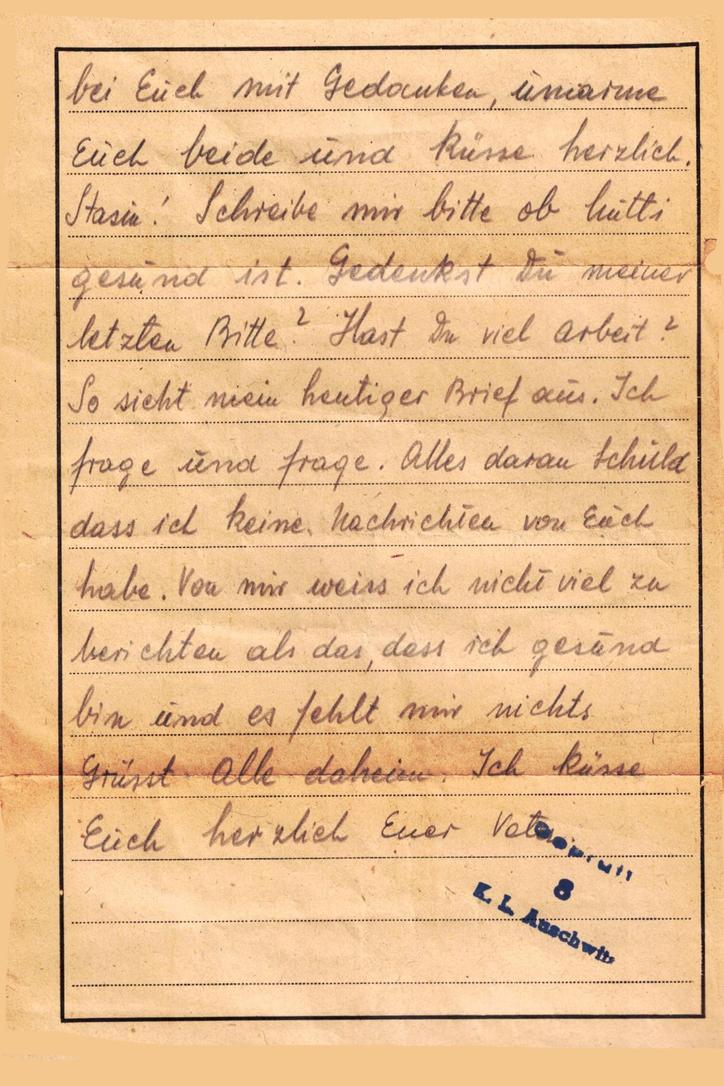 bei Euch mit Gedanken, umarme
Euch beide und küsse herzlich.
Stasiu! Schreibe mir bitte ob Mutti
gesund ist. Gedenkst Du meiner
letzten Bitte? Hast Du viel Arbeit?
So sieht mein heutiger Brief aus. Ich
frage und frage. Alles daran Schuld
dass ich keine Nachrichten von Euch
habe. Von mir weiss ich nicht viel zu
berichten als das, dass ich gesund
bin und es fehlt mir nichts
Grüsst Alle daheim. Ich küsse
Euch herzlich Euer Vater
Geprüft
8
K. L. Auschwitz